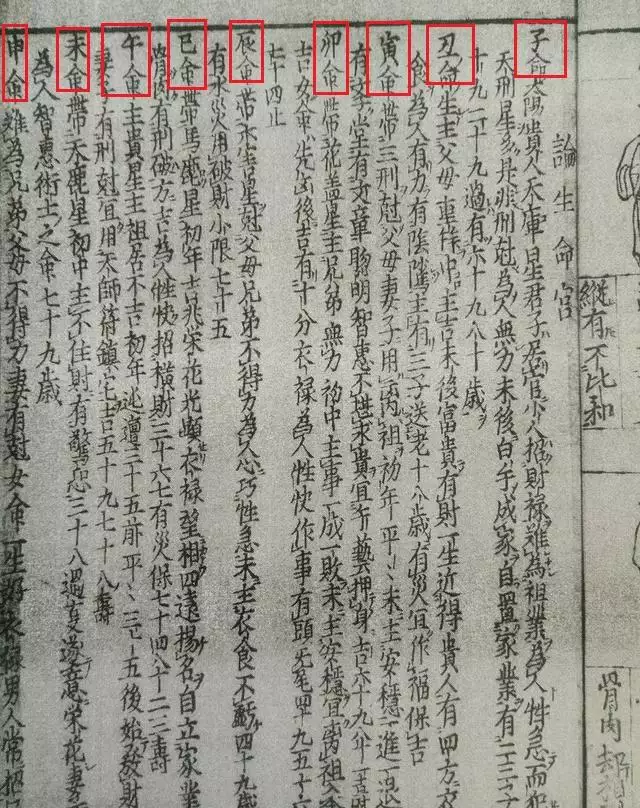 論生命宮
子命太陽貴人天庫星君子居官少人招財祿難為祖業為人性急而犯
天刑星多是非刑尅為人無力末後白手成家自置家業有二三子
十九二十九過有六十九八十歲
丑命生主父母重拜中主吉末後富貴有財一生近得貴人有四方衣
食為人有力有陰隲主有二子送老十八歲有災宜作福保吉
寅命帶三刑尅父母妻子用离祖初年平々末主安穩一進一退
有文堂有文章聰明智惠不世求貴宜有藝押身吉六十九八十吉
卯命帶花蓋星主兄弟無力初中主事一成一敗末主安穩宜离祖
吉女命先凶後吉有十分衣祿為人性快作事有頭无尾四十九五十六
七十四止
辰命帶不吉星尅父母兄弟不得力為人心巧性急末主衣食不虧四十九歲
有水災用破財小限七十五
巳命帶馬鹿星初年吉兆榮花光顯衣祿望相四遠揚名自立家業
骨肉有刑破方吉為人性快招橫財三十六七有災保七十四八十二三壽
午命主真星主祖居不吉初年迍邅三十五前平々三十五後始發財
妻子有刑尅宜用天師符鎮宅吉五十九七十八壽
未命帶天鹿星初中主不住財有驚恐三十八過有遂意榮花妻
為人智惠術士之命七十九歲
申命難為兄弟父母不得力妻有尅女命一生好衣祿男人常招
縱有不比和
骨肉